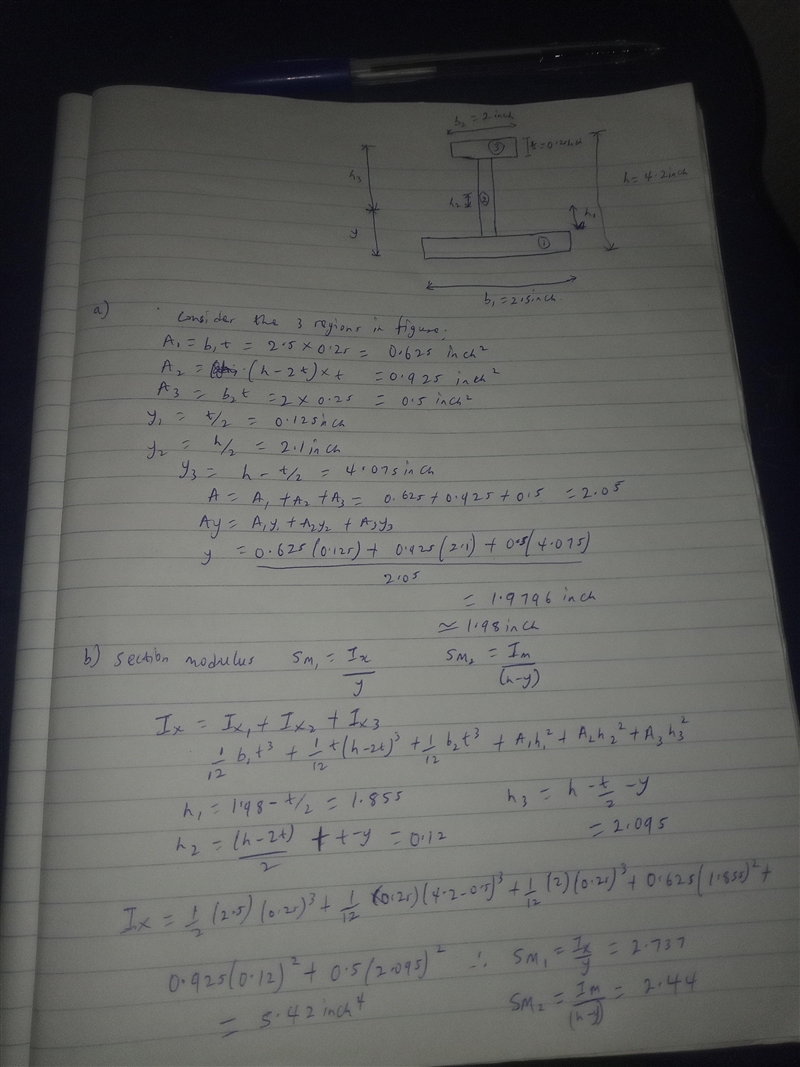 b₂ = 2 inch
③
t = 0.25inch
h₃
h₂
②
h = 4.2inch
h₁
y
①
b₁ = 2.5inch
a)
Consider the 3 regions in figure.
A₁ = b₁t = 2.5 × 0.25 = 0.625 inch²
A₂ = (h-2t) × t = 0.925 inch²
A₃ = b₂t = 2 × 0.25 = 0.5 inch²
y₁ = t/2 = 0.125inch
y₂ = h/2 = 2.1 inch
y₃ = h - t/2 = 4.075inch
A = A₁ + A₂ + A₃ = 0.625 + 0.925 + 0.5 = 2.05
Ay = A₁y₁ + A₂y₂ + A₃y₃
y = 0.625(0.125) + 0.925(2.1) + 0.5(4.075)
2.05
= 1.9796 inch
≃ 1.98 inch
b) Section modulus SM₁ = Ix/y SM₂ = Im/(h-y)
Ix = Ix₁ + Ix₂ + Ix₃
1/12 b₁t³ + 1/12 t(h-2t)³ + 1/12 b₂t³ + A₁h₁² + A₂h₂² + A₃h₃²
h₁ = 1.98 - t/2 = 1.855 h₃ = h - t/2 - y
h₂ = (h-2t)/2 + t - y = 0.12 = 2.095
Ix = 1/2 (2.5)(0.25)³ + 1/12 (0.25)(4.2-0.5)³ + 1/12 (2)(0.25)³ + 0.625(1.855)² +
0.925(0.12)² + 0.5(2.095)² ∴ SM₁ = Ix/y = 2.737
= 5.42 inch⁴ SM₂ = Im/(h-y) = 2.44